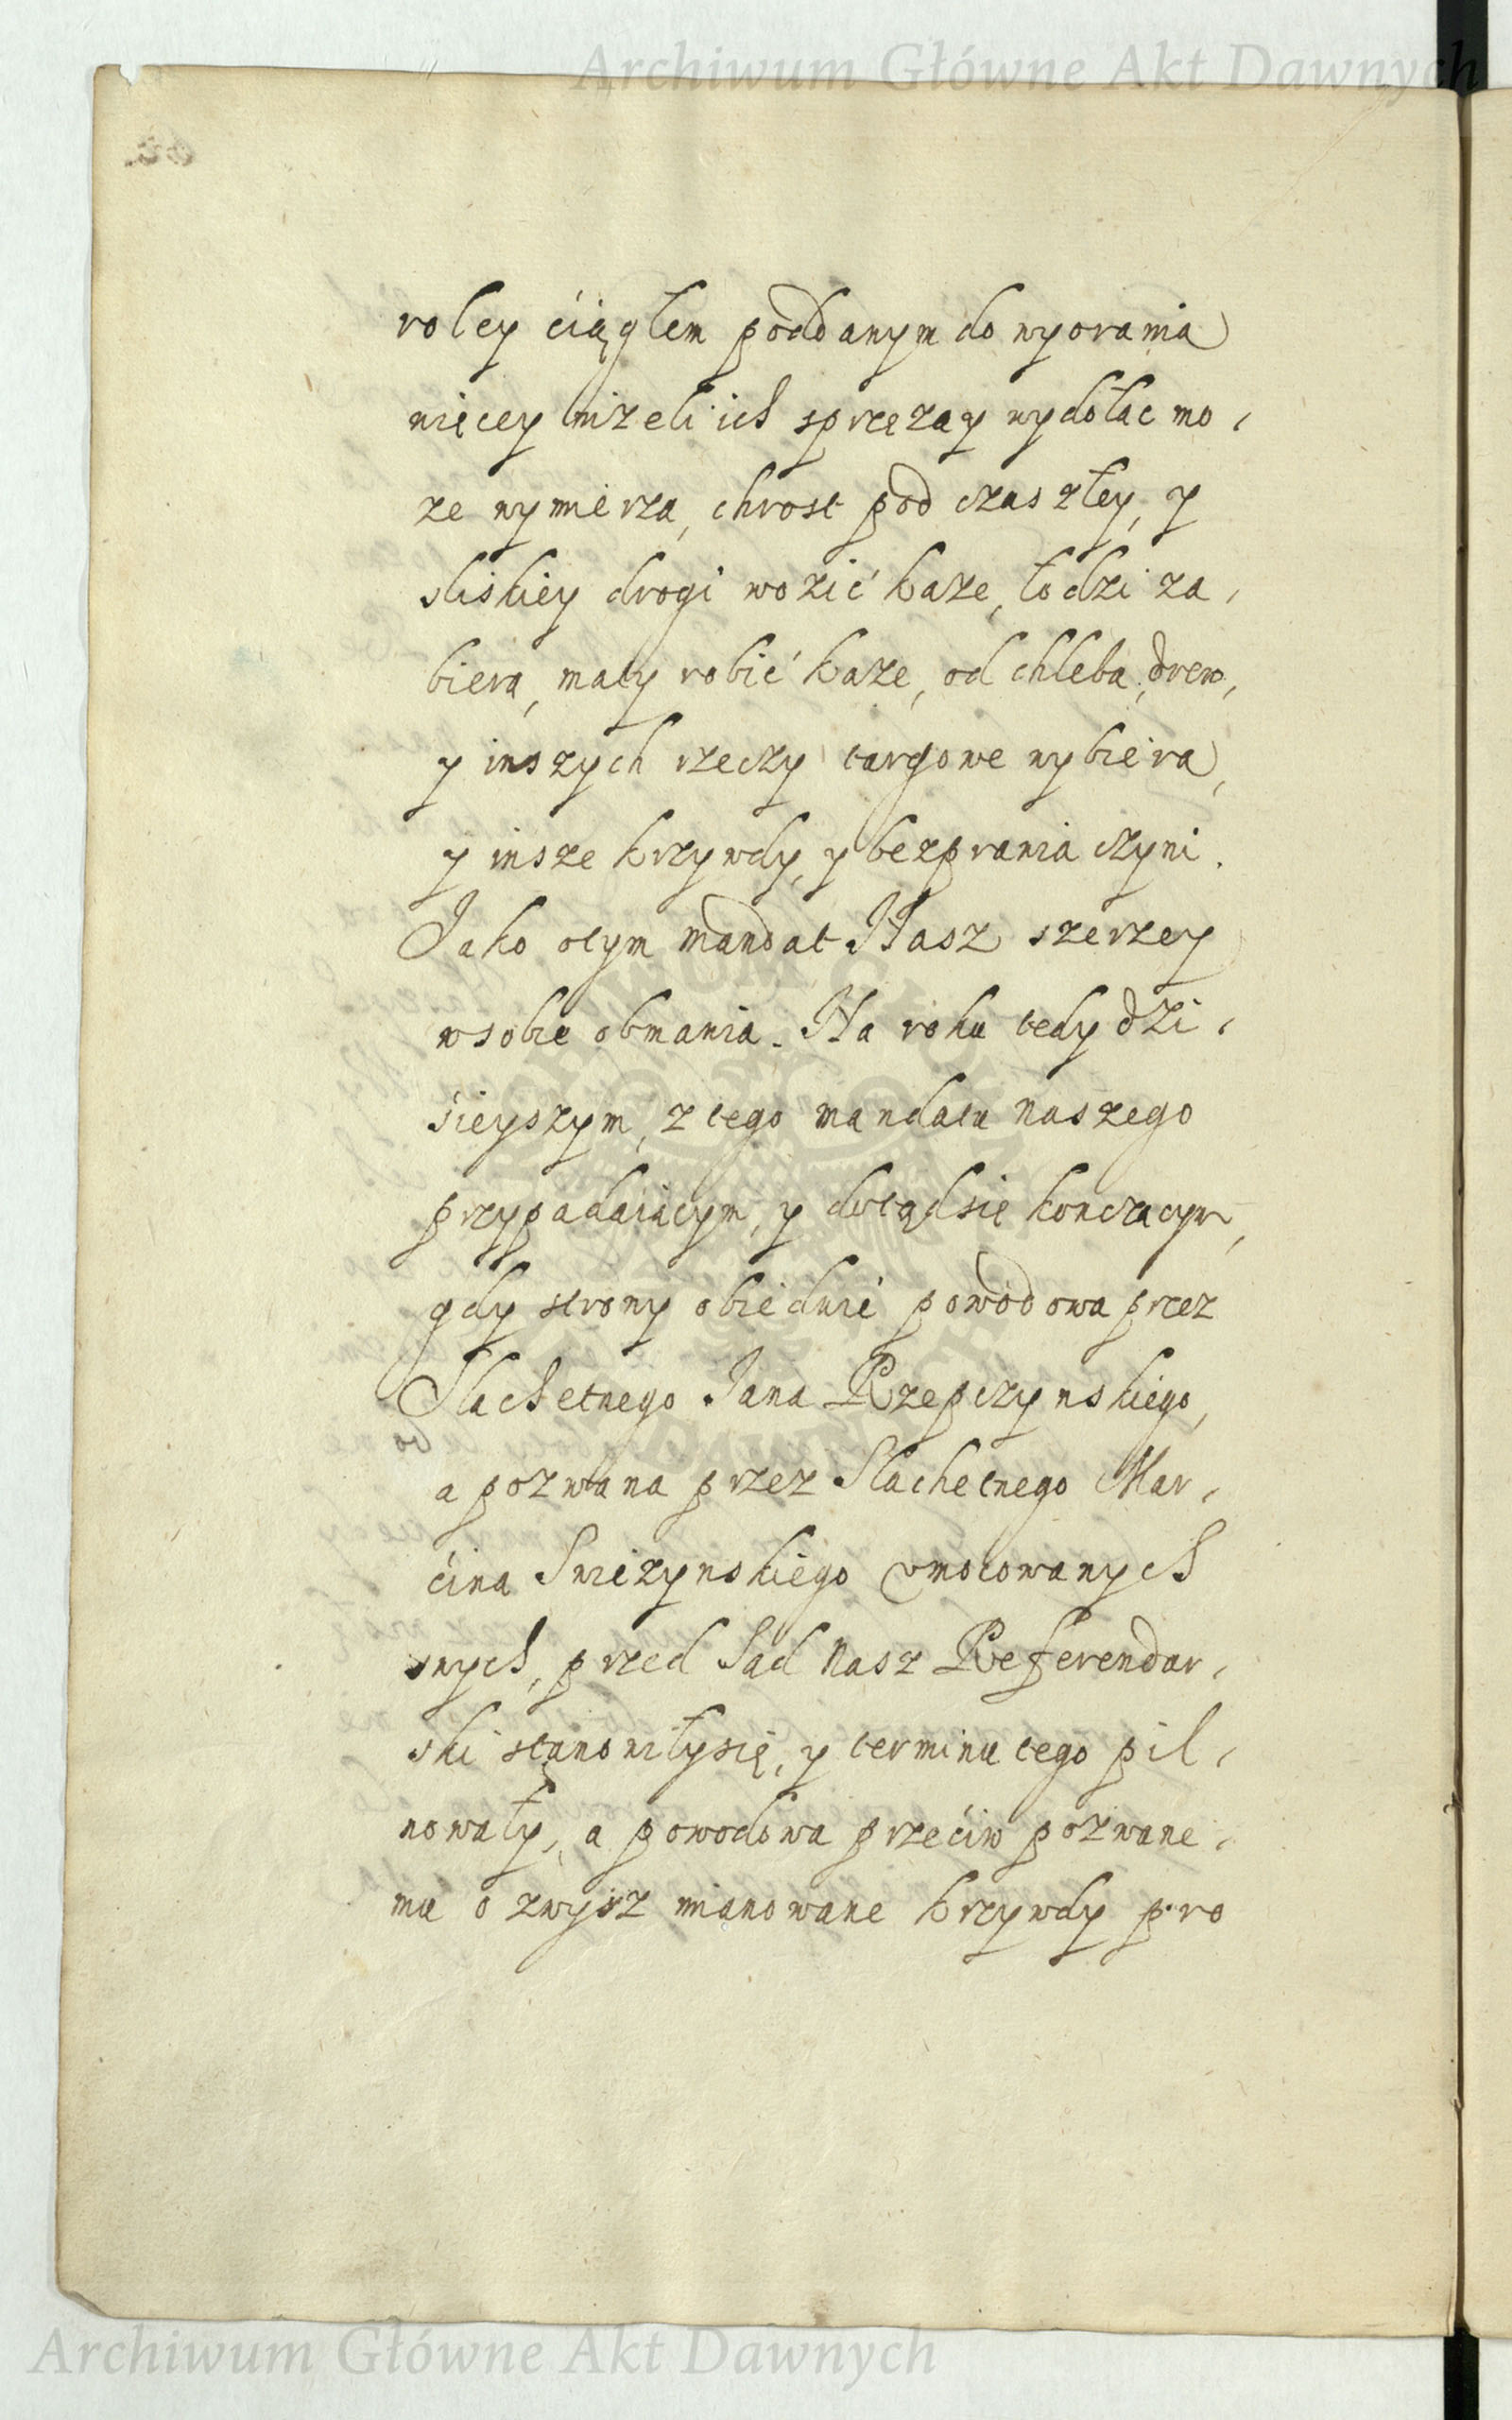 Archiwum Główne Akt Dawnych
roley ciągłem poddanym do wyorania
więcey niżeli ich sprzężay wydołac mo,
ze wymierza, chrost pod czas złey, y
sliskiey drogi wozić kaze, łodzi za,
biera, maty robić kaze, od chleba, drew,
y inszych rzeczy targowe wybiera,
y insze krzywdy, y bezprawia czyni.
Jako otym mandat Nasz szerzey
wsobie obmawia. Na roku tedy dzi,
śieyszym, z tego mandatu naszego
przypadaiącym, y dotądsię konczącym,
gdy strony obiedwie powodowa przez
Slachetnego Jana Rzepczynskiego,
a pozwana przez Slachetnego Mar,
ćina Swiezynskiego vmocowanych
swych, przed Sąd Nasz Referendar,
ski stanowiłysię, y terminu tego pil,
nowały, a powodowa przećiw pozwane,
mu o zwysz mianowane krzywdy pro
Archiwum Główne Akt Dawnych